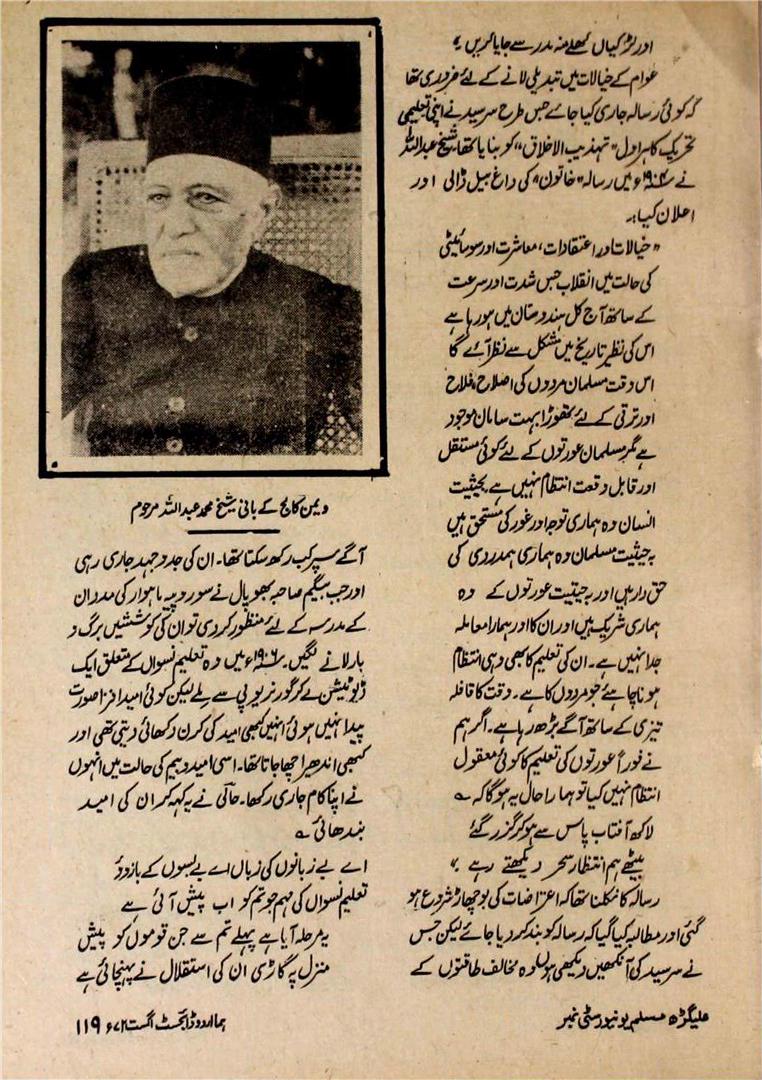 اور لڑکیاں کھلے منہ مدرسے جایا کریں۔"
عوام کے خیالات میں تبدیلی لانے کے لئے ضروری تھا
کہ کوئی رسالہ جاری کیا جائے جس طرح سرسید نے اپنی تعلیمی
تحریک کا ہراول "تہذیب الاخلاق" کو بنایا تھا۔ شیخ عبداللہ
نے ۱۹۰۴ء میں رسالہ "خاتون" کی داغ بیل ڈالی اور
اعلان کیا:۔
"خیالات اور اعتقادات، معاشرت اور سوسائیٹی
کی حالت میں انقلاب جس شدت اور سرعت
کے ساتھ آج کل ہندوستان میں ہو رہا ہے
اس کی نظیر تاریخ میں مشکل سے نظر آئے گا
اس وقت مسلمان مردوں کی اصلاح، فلاح
اور ترقی کے لئے تھوڑا بہت سامان موجود
ہے مگر مسلمان عورتوں کے لئے کوئی مستقل
اور قابل وقعت انتظام نہیں ہے بحیثیت
انسان وہ ہماری توجہ اور غور کی مستحق ہیں
بہ حیثیت مسلمان وہ ہماری ہمدردی کی
حق دار ہیں اور بہ حیثیت عورتوں کے وہ
ہماری شریک ہیں اور ان کا اور ہمارا معاملہ
جدا نہیں ہے۔ ان کی تعلیم کا بھی وہی انتظام
ہونا چاہئے جو مردوں کا ہے۔ وقت کا قافلہ
تیزی کے ساتھ آگے بڑھ رہا ہے۔ اگر ہم
نے فوراً عورتوں کی تعلیم کا کوئی معقول
انتظام نہیں کیا تو ہمارا حال یہ ہوگا کہ ؎
لاکھ آفتاب پاس سے ہو کر گزر گئے
بیٹھے ہم انتظار سحر دیکھتے رہے۔"
رسالہ کا نکلنا تھا کہ اعتراضات کی بوچھاڑ شروع ہو
گئی اور مطالبہ کیا گیا کہ رسالہ کو بند کر دیا جائے لیکن جس
نے سرسید کی آنکھیں دیکھی ہوں وہ مخالف طاقتوں کے
ویمن کالج کے بانی شیخ محمد عبداللہ مرحوم
آگے سپر کب رکھ سکتا تھا۔ ان کی جدوجہد جاری رہی
اور جب بیگم صاحبہ بھوپال نے سو روپیہ ماہوار کی مدد ان
کے مدرسہ کے لئے منظور کر دی تو ان کی کوششیں برگ و
بار لانے لگیں۔ ۱۹۰۶ء میں وہ تعلیم نسواں کے متعلق ایک
ڈپوٹیشن لے کر گورنر یوپی سے ملے لیکن کوئی امید افزا صورت
پیدا نہیں ہوئی انہیں کبھی امید کی کرن دکھائی دیتی تھی اور
کبھی اندھیرا چھا جاتا تھا۔ اسی امید و بیم کی حالت میں انہوں
نے اپنا کام جاری رکھا۔ حالی نے یہ کہہ کر ان کی امید
بندھائی ؎
اے بے زبانوں کی زباں اے بے بسوں کے بازوؤ
تعلیم نسواں کی مہم جو تم کو اب پیش آئی ہے
یہ مرحلہ آیا ہے پہلے تم سے جن قوموں کو پیش
منزل پہ گاڑی ان کی استقلال نے پہنچائی ہے
علیگڑھ مسلم یونیورسٹی نمبر
ہما اردو ڈائجسٹ اگست ۷۲ء ۱۱۹